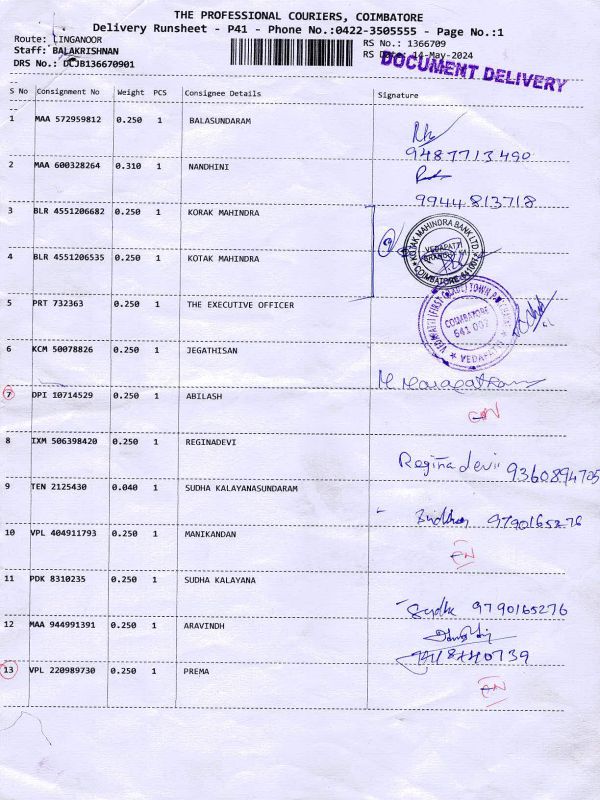 THE PROFESSIONAL COURIERS, COIMBATORE
Delivery Runsheet - P41 - Phone No.:0422-3505555 - Page No.:1
Route: LINGANOOR
RS No.: 1366709
Staff: BALAKRISHNAN
RS Date: 14-May-2024
DRS No.: DCJB136670901
DOCUMENT DELIVERY
S No Consignment No Weight PCS Consignee Details Signature
1 MAA 572959812 0.250 1 BALASUNDARAM
9487713490
2 MAA 600328264 0.310 1 NANDHINI
9944813718
3 BLR 4551206682 0.250 1 KORAK MAHINDRA
KOTAK MAHINDRA BANK LTD
VEDAPATTI
BRANCH
COIMBATORE 641007
4 BLR 4551206535 0.250 1 KOTAK MAHINDRA
5 PRT 732363 0.250 1 THE EXECUTIVE OFFICER
COIMBATORE
641 007
VEDAPATTI
6 KCM 50078826 0.250 1 JEGATHISAN
7 DPI 10714529 0.250 1 ABILASH
8 IXM 506398420 0.250 1 REGINADEVI
Regina devi 9360894705
9 TEN 2125430 0.040 1 SUDHA KALAYANASUNDARAM
9790165276
10 VPL 404911793 0.250 1 MANIKANDAN
11 PDK 8310235 0.250 1 SUDHA KALAYANA
Sudha 9790165276
12 MAA 944991391 0.250 1 ARAVINDH
13 VPL 220989730 0.250 1 PREMA